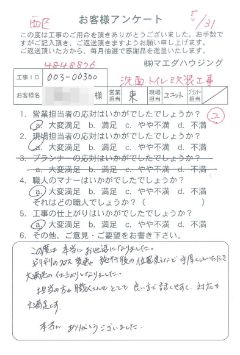 西区
お客様アンケート
5/31
この度は工事のご用命を頂きありがとうございました。お手数で
すがご記入頂き、ご返送頂きますようお願い申し上げます。
ご返送頂いた方から、毎月抽選で感謝品を進呈いたします。
4848876
㈱マエダハウジング
工事ID 003-00300 洗面トイレ改装工事
お名前 様 営業担当 東 現場担当 プラン担当
1. 営業担当者の応対はいかがでしたでしょうか?
ⓐ大変満足 b. 満足 c. やや不満 d. 不満
2. 現場担当者の応対はいかがでしたでしょうか?
ⓐ大変満足 b. 満足 c. やや不満 d. 不満
3. プランナーの応対はいかがでしたでしょうか?
a. 大変満足 b. 満足 c. やや不満 d. 不満
4. 職人のマナーはいかがでしたでしょうか?
ⓐ大変満足 b. 満足 c. やや不満 d. 不満
それはどの職人でしょうか?( )
5. 工事の仕上がりはいかがでしたでしょうか?
ⓐ大変満足 b. 満足 c. やや不満 d. 不満
6. その他、ご意見・ご要望をお書き下さい。
この度は本当にお世話になりました。
大満足の仕上がりになりました。
大満足です
本当に ありがとうございました